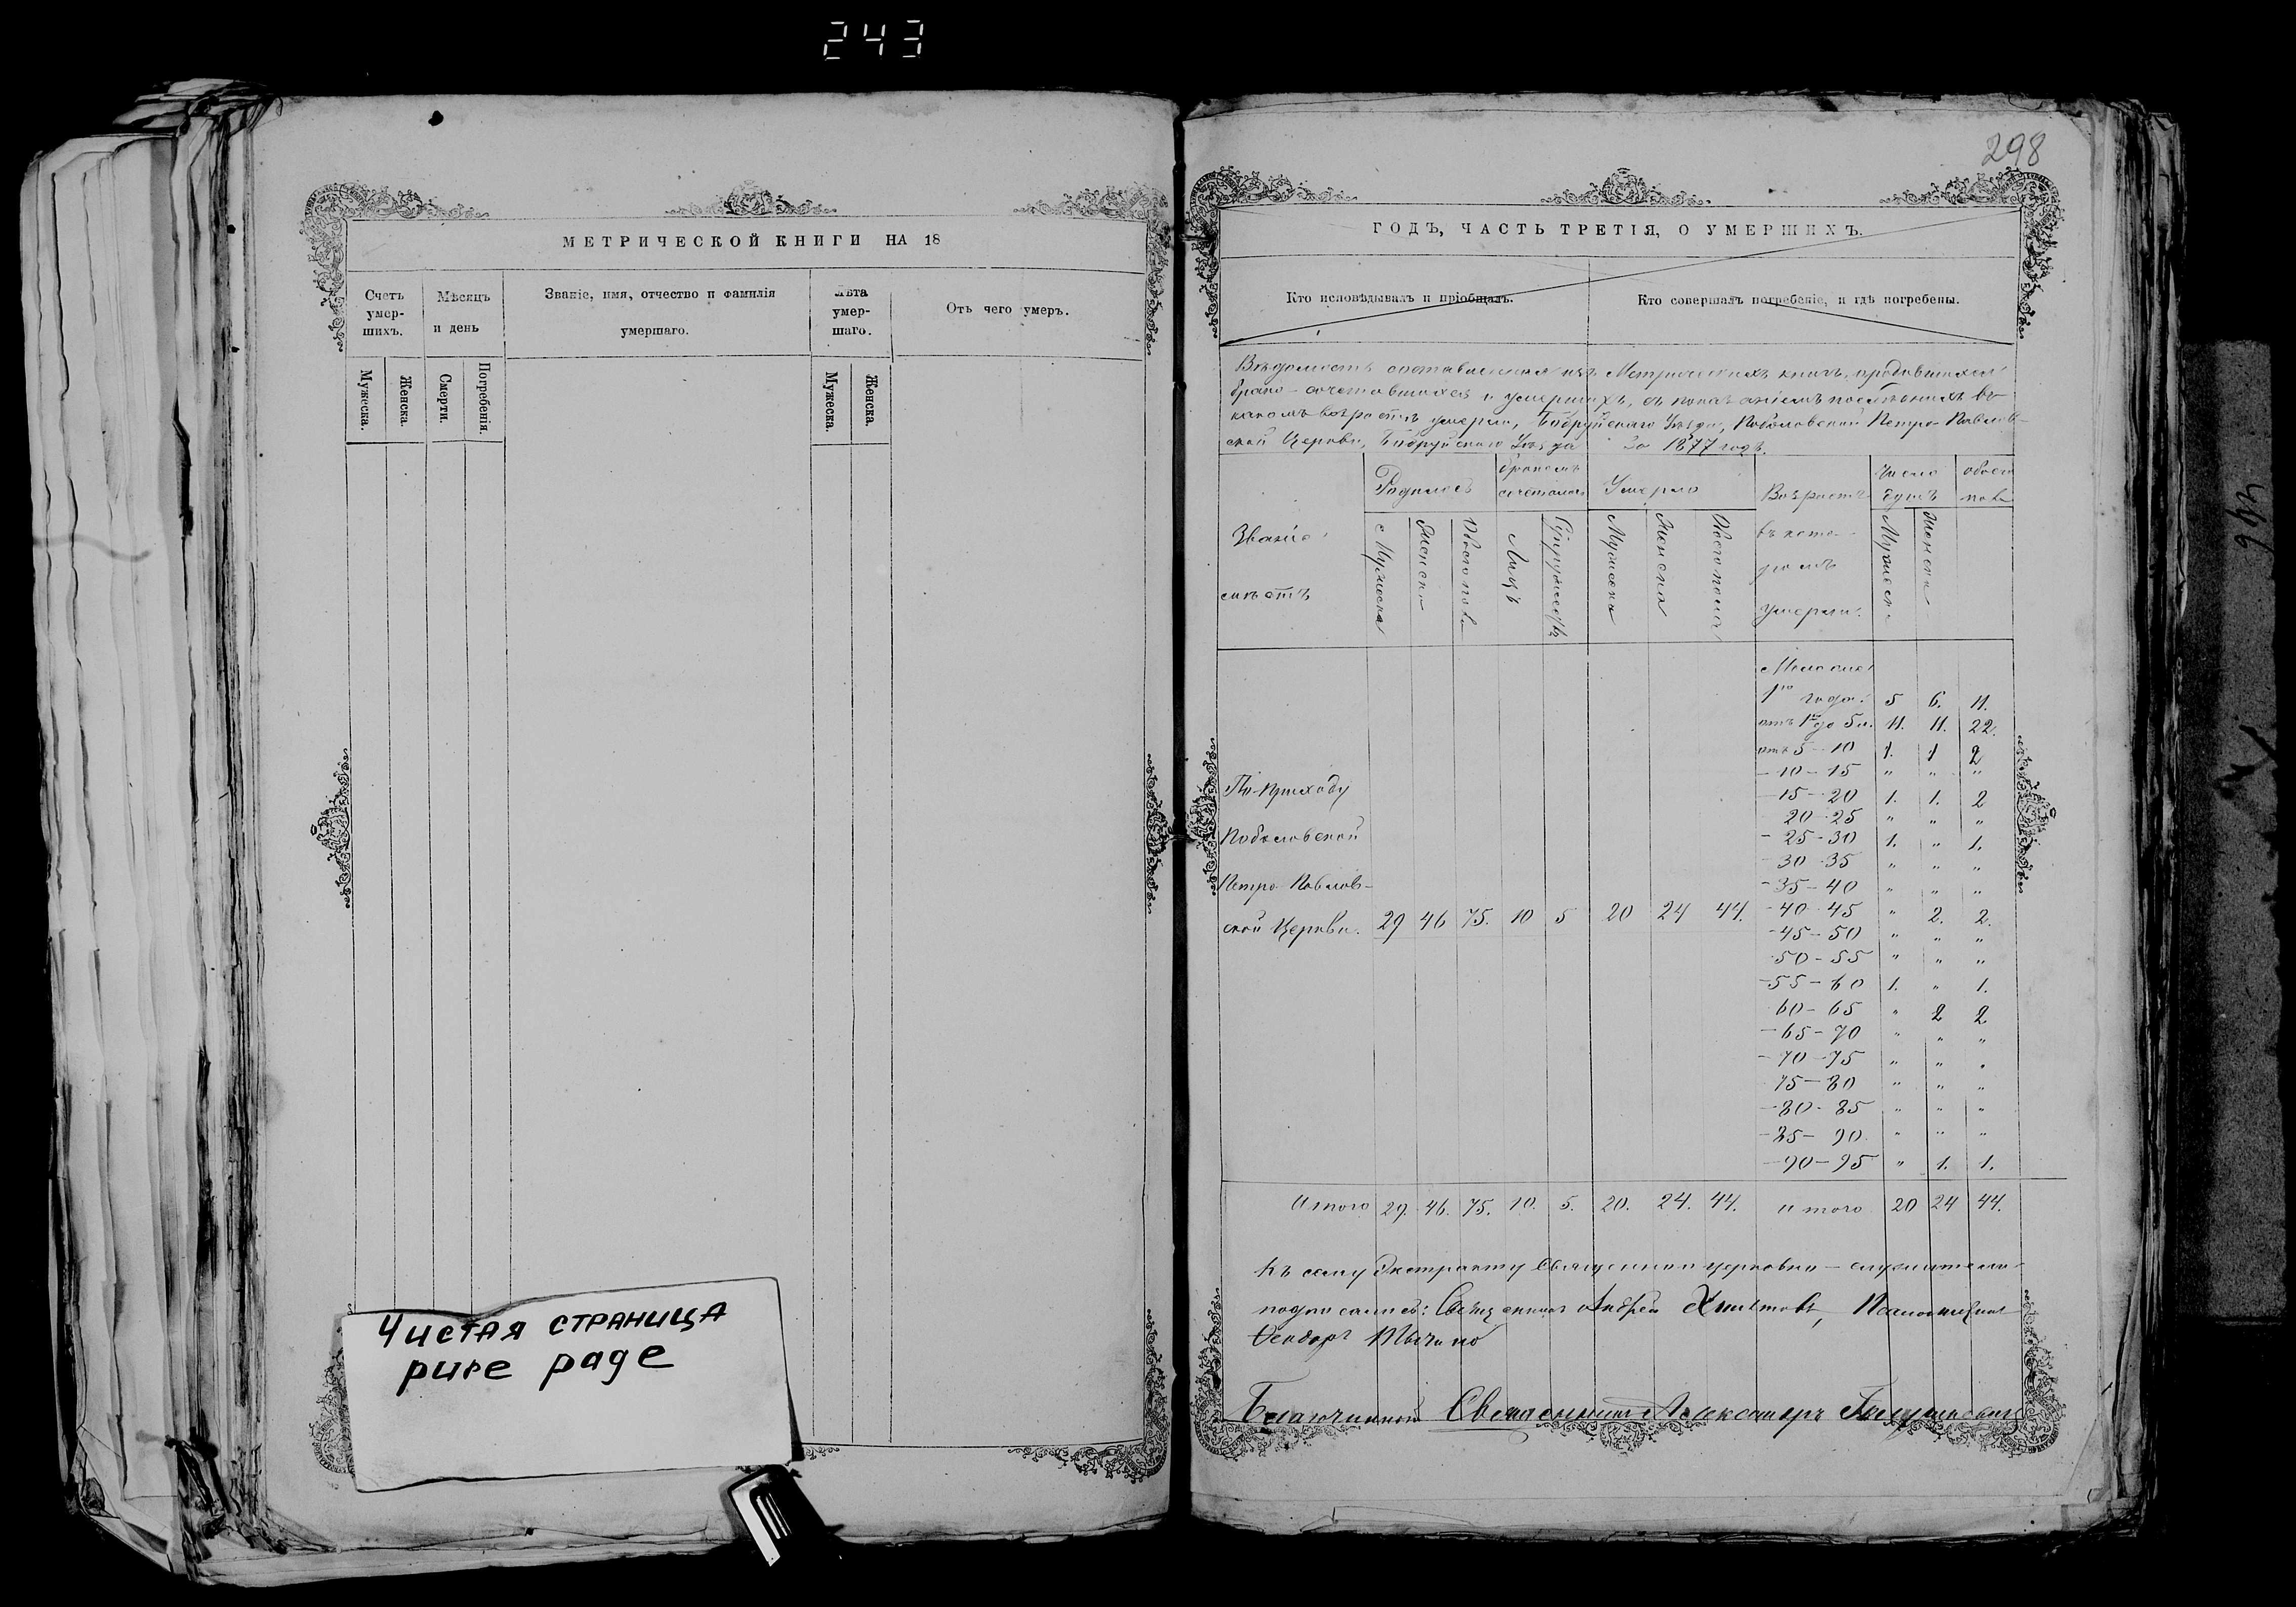 243
МЕТРИЧЕСКОЙ КНИГИ НА 18
Счетъ умер-шихъ.
Мѣсяцъ и день
Званіе, имя, отчество и фамилія умершаго.
лѣта умер-шаго.
Отъ чего умеръ.
Мужеска.
Женска.
Смерти.
Погребенія.
Мужеска.
Женска.
Чистая страница
pure page
298
ГОДЪ, ЧАСТЬ ТРЕТІЯ, О УМЕРШИХЪ.
Кто исповѣдывалъ и пріобщалъ.
Кто совершалъ погребеніе, и гдѣ погребены.
Вѣдомость составленная изъ Метрическихъ книгъ, о родившихся
брако-сочетавшихся и умершихъ, съ показаніемъ послѣднихъ въ
какомъ возрастѣ умерли, Бобруйскаго Уѣзда, Поболовской Петро-Павлов-
ской Церкви, Бобруйскаго Уѣзда за 1877 годъ.
Званіе
мѣстъ
Родилось
бракомъ сочеталось
Умерло
Возрастъ
въ кото-
ромъ
умерли.
Число душъ
обоего пола
Мужеска
Женска
Обоего пола
Лицъ
Супружествъ
Мужеска
Женска
Обоего пола
Мужеска
Женска
Моложе
1го года. 5 6. 11.
отъ 1го до 5л. 11. 11. 22.
отъ 5-10 1. 1 2
-10-15 " " "
-15-20 1. 1. 2
20-25 " " "
-25-30 1. " 1.
30-35 " " "
-35-40 " " "
-40-45 " 2. 2.
-45-50 " " "
50-55 " " "
-55-60 1. " 1.
60-65 " 2 2
-65-70 " " "
-70-75 " " "
75-80 " " "
-80-85 " " "
-85-90. " " "
-90-95 " 1. 1.
По Приходу
Поболовской
Петро Павлов-
ской Церкви. 29 46 75. 10 5 20 24 44.
Итого 29. 46. 75. 10. 5. 20. 24. 44. итого 20 24 44.
Къ сему Экстракту Священно церковно-служители
подписались: Священникъ Андрей Псаломщикъ
Благочинный Священникъ Александръ